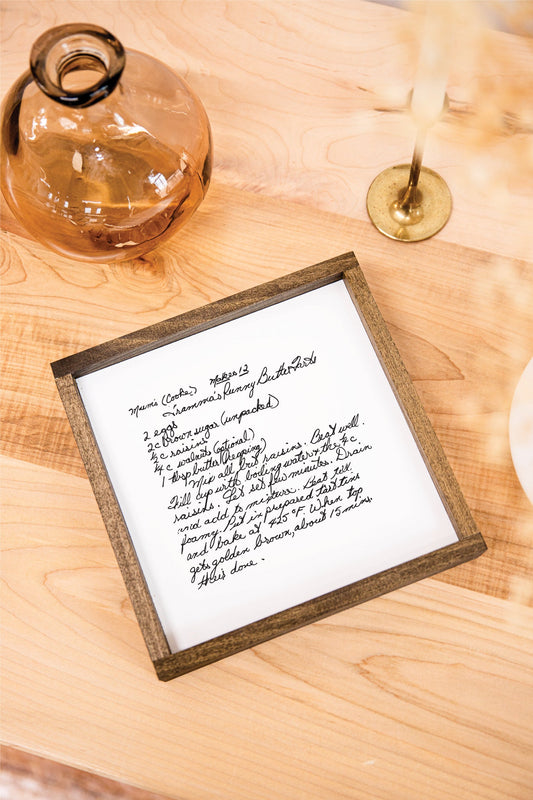 Mum's (Cooke) Makes 12
Gramma's Runny Butter Tarts
2 eggs
2 c brown sugar (unpacked)
½ c raisins
¼ c. walnuts (optional)
1 tbsp butter (heaping)
Mix all but raisins. Beat well.
Fill cup with boiling water + the ½ c.
raisins. Let set few minutes. Drain
and add to mixture. Beat till
foamy. Put in prepared tart tins
and bake at 425°F. When top
gets golden brown, about 15 mins.
they're done.